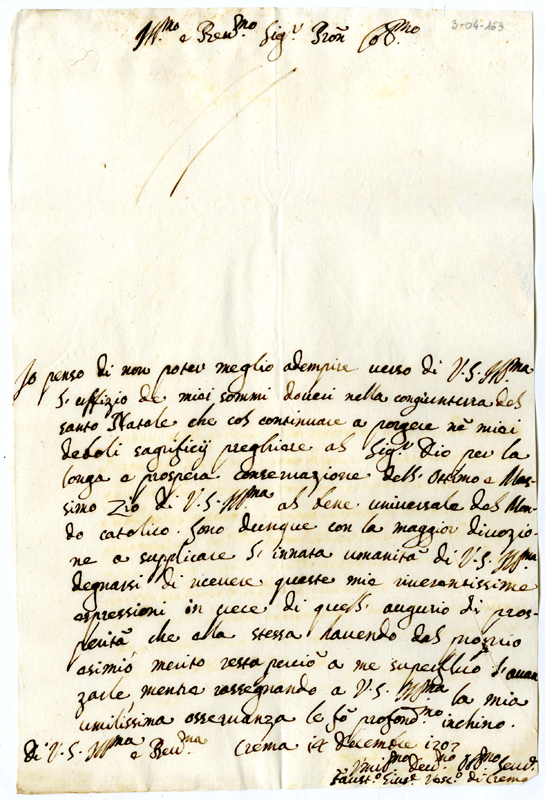 3-04-163
Ill.mo e Rev.mo Sig.r Pron Col.mo
Io penso di non poter meglio adempire verso di V. S. Ill.ma
l'uffizio de miei sommi doveri nella congiuntura del
santo Natale che col continuare a porgere nè miei
deboli sagrificij preghiere al Sig.r Dio per la
longa e prospera conservazione dell'Ottimo e Mas-
simo Zio di V. S. Ill.ma al bene universale del Mon-
do catolico. Sono dunque con la maggior divozio-
ne a supplicare l'innata umanità di V. S. Ill.ma
degnarsi di ricevere queste mie riverentissime
espressioni in vece di quell'augurio di pros-
perità che alla stessa havendo dal proprio
merito resta perciò a me superfluo l'avan
zarle mentre rassegnando a V. S. Ill.ma la mia
umilissima osservanza le fò profond.mo inchino.
Di V. S. Ill.ma e Rev.ma Crema 14 Decembre 1707
Umil.mo Dev.mo Obl.mo Serv.
Faust.o Gius.e Vesc.o di Crema